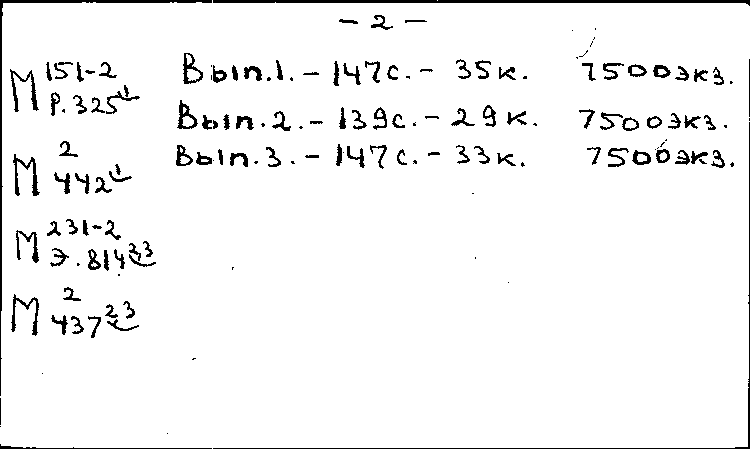 - 2 -
М 151-2
Р.325 1
М 2
442 1
М 231-2
Э.814 23
М 2
437 23
Вып.1. - 147с. - 35к. 7500экз.
Вып.2. - 139с. - 29к. 7500экз.
Вып.3. - 147с. - 33к. 7500экз.